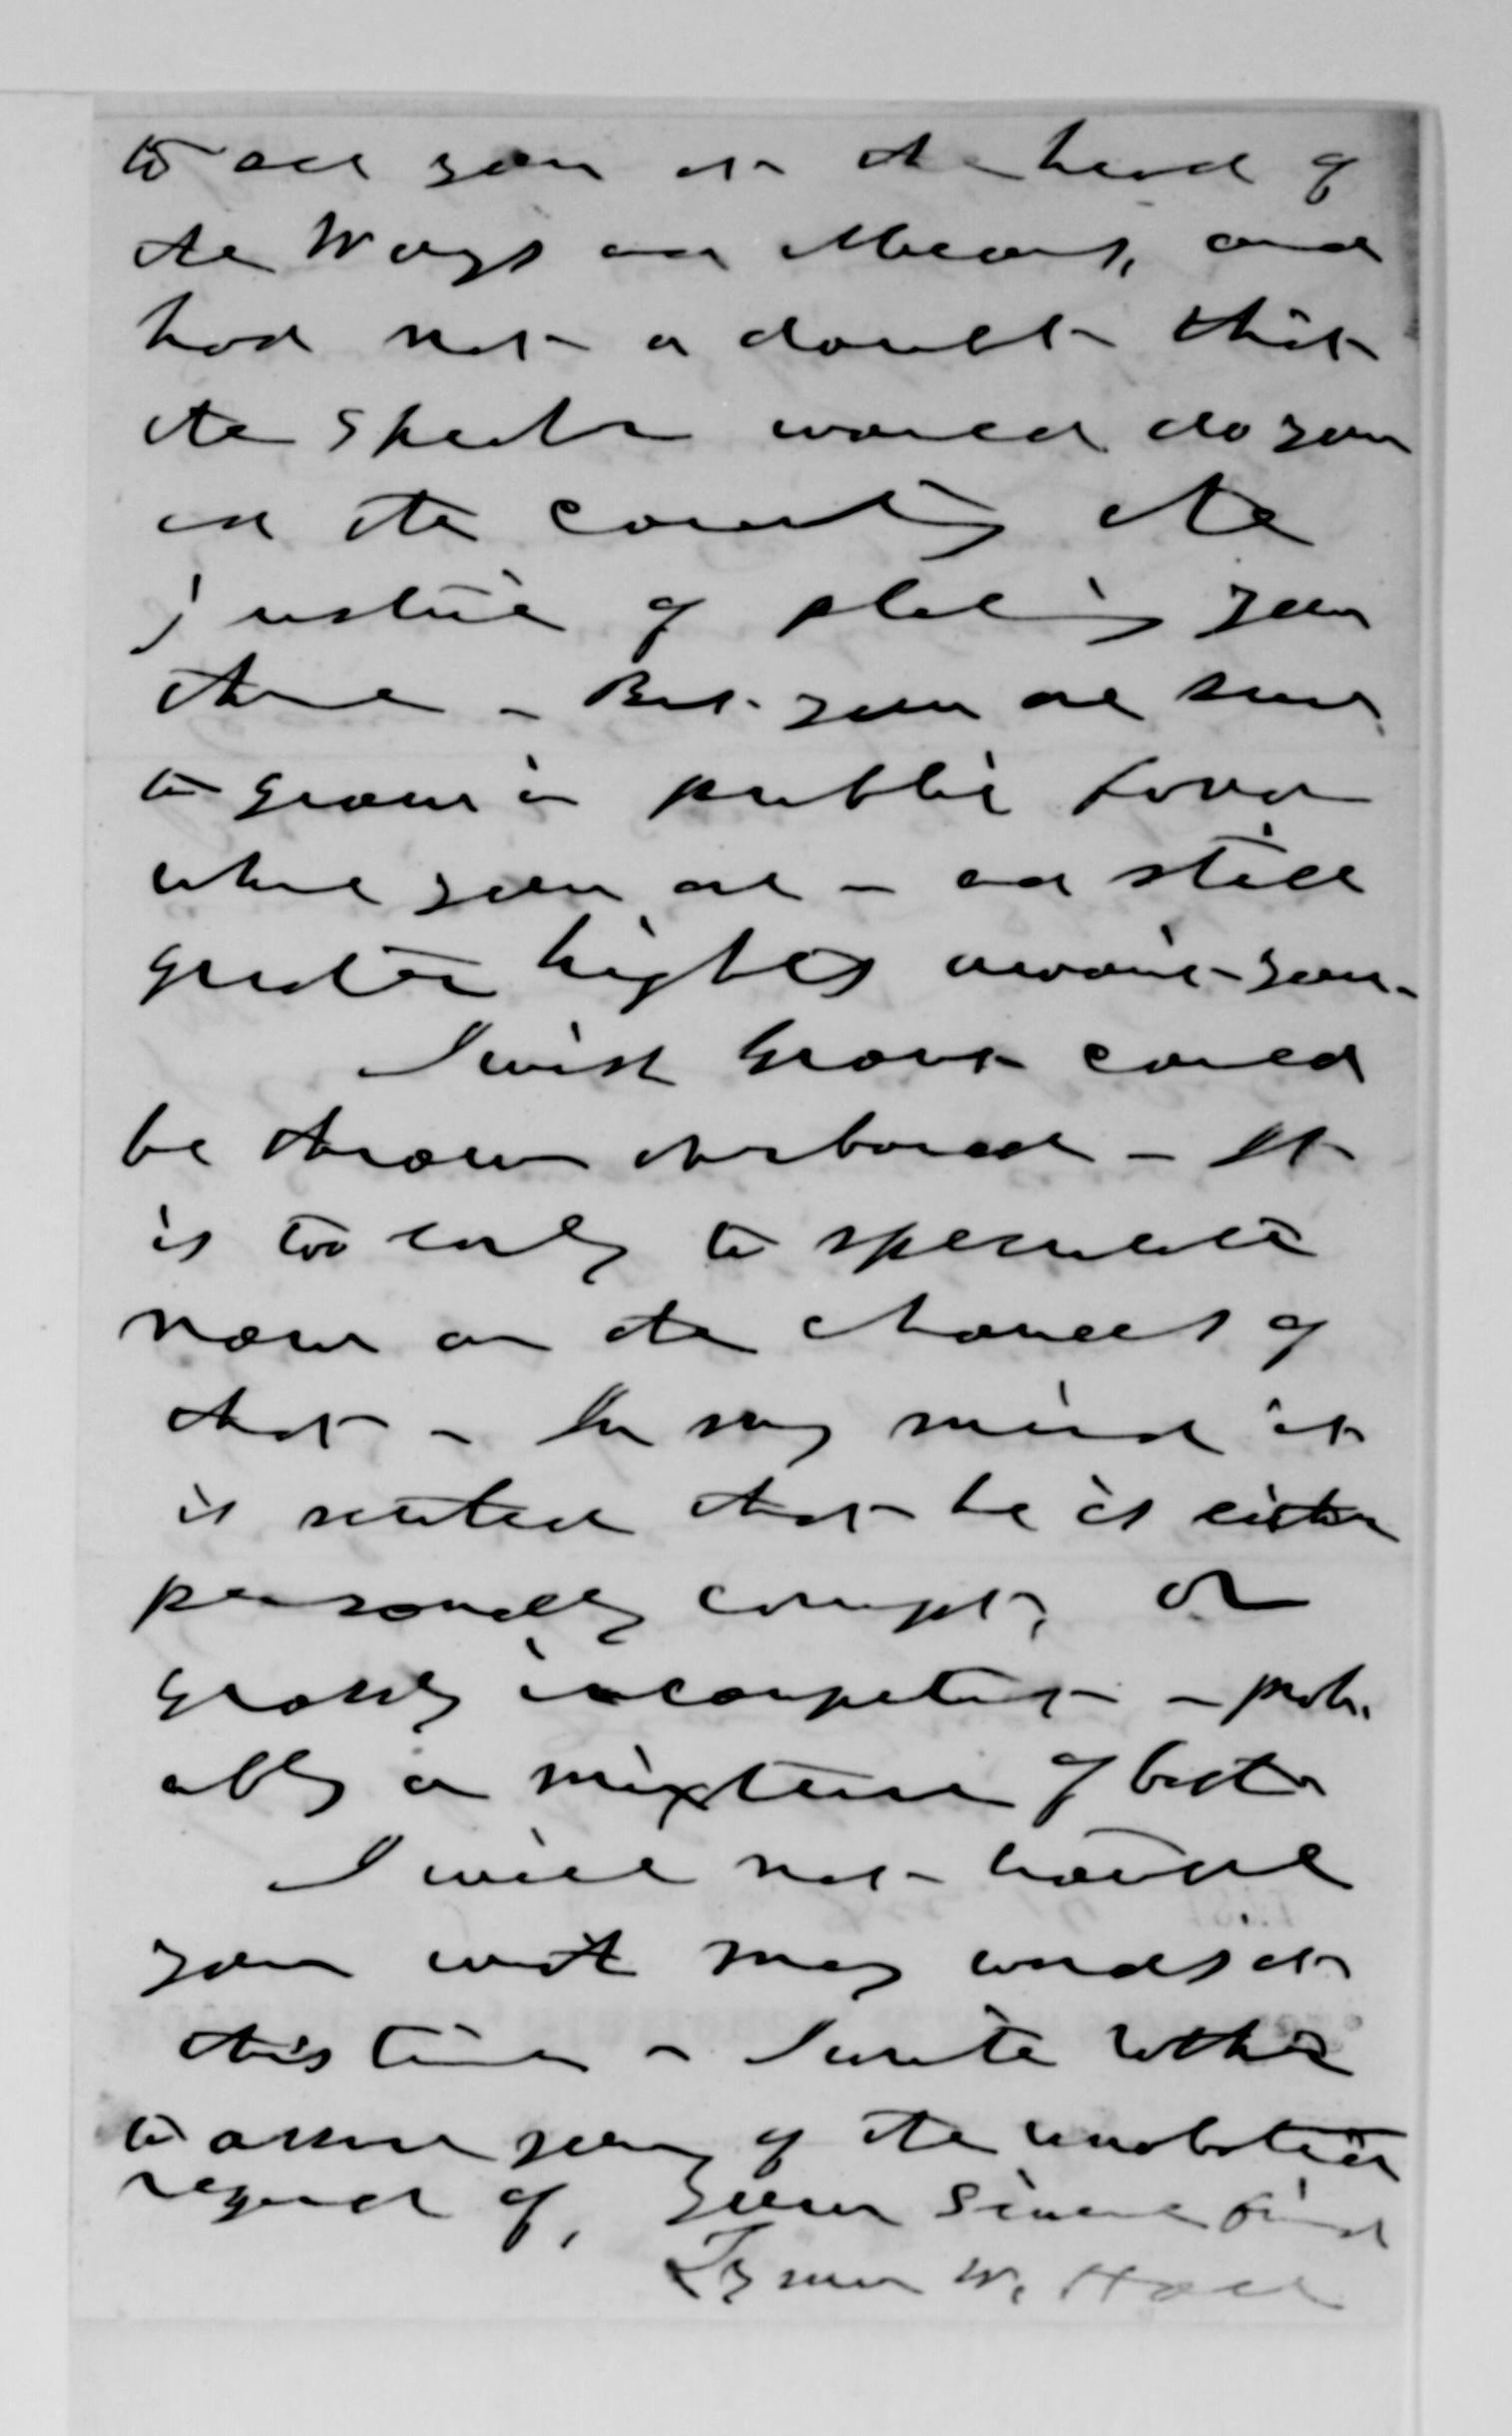 to see you at the head of
the Ways and Means, and
had not a doubt that
the Speaker would do you
and the country the
justice of placing you
there – But you are sure
to grow in public favor
where you are – and still
greater hights await you –
I wish Grant could
be thrown overboard – It
is too early to speculate
now on the chances of
that – In my mind it
is settled that he is either
personally corrupt, or
grossly incompetent – prob-
ably a mixture of both
I will not
you with my words at
this time – I write rather
to assure you of the unabated
regard of, Your Sincere friend
Lyman W. Hall